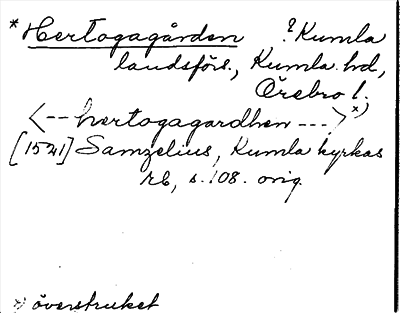 *Hertogagården ?Kumla
landsförs., Kumla hd,
Örebro l.
<--hertogagardhen---> x)
[1541] Samzelius, Kumla kyrkas
rb, s. 108. orig.
x) överstruket